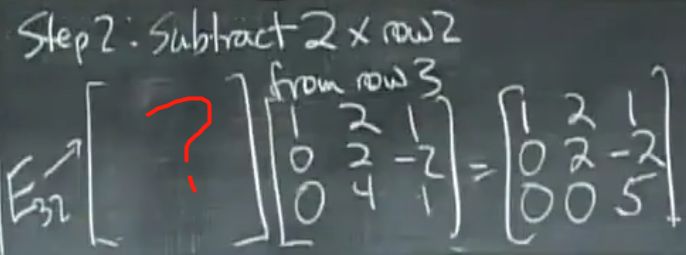 Step 2: Subtract 2 x row 2
from row 3
E32 [ ? ] [ 1 2 1 = [ 1 2 1
0 2 -2 0 2 -2
0 4 1 ] 0 0 5 ]